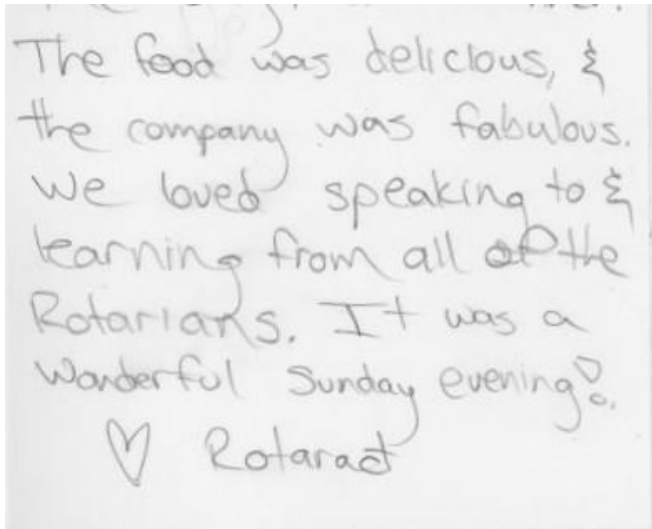 The food was delicious, &
the company was fabulous.
We loved speaking to &
learning from all of the
Rotarians. It was a
wonderful Sunday evening!
♡ Rotaract